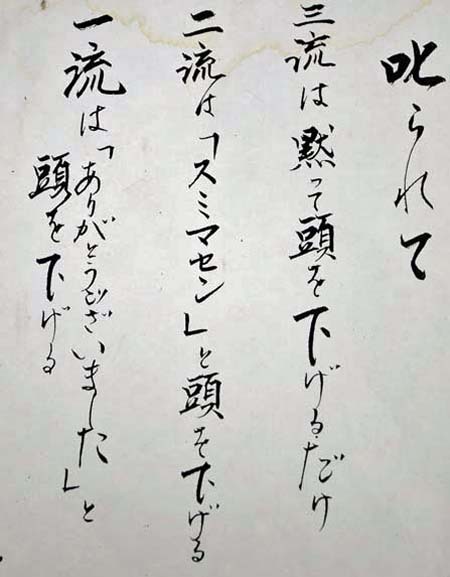 叱られて
三流は黙って頭を下げるだけ
二流は「スミマセン」と頭を下げる
一流は「ありがとうございました」と
頭を下げる